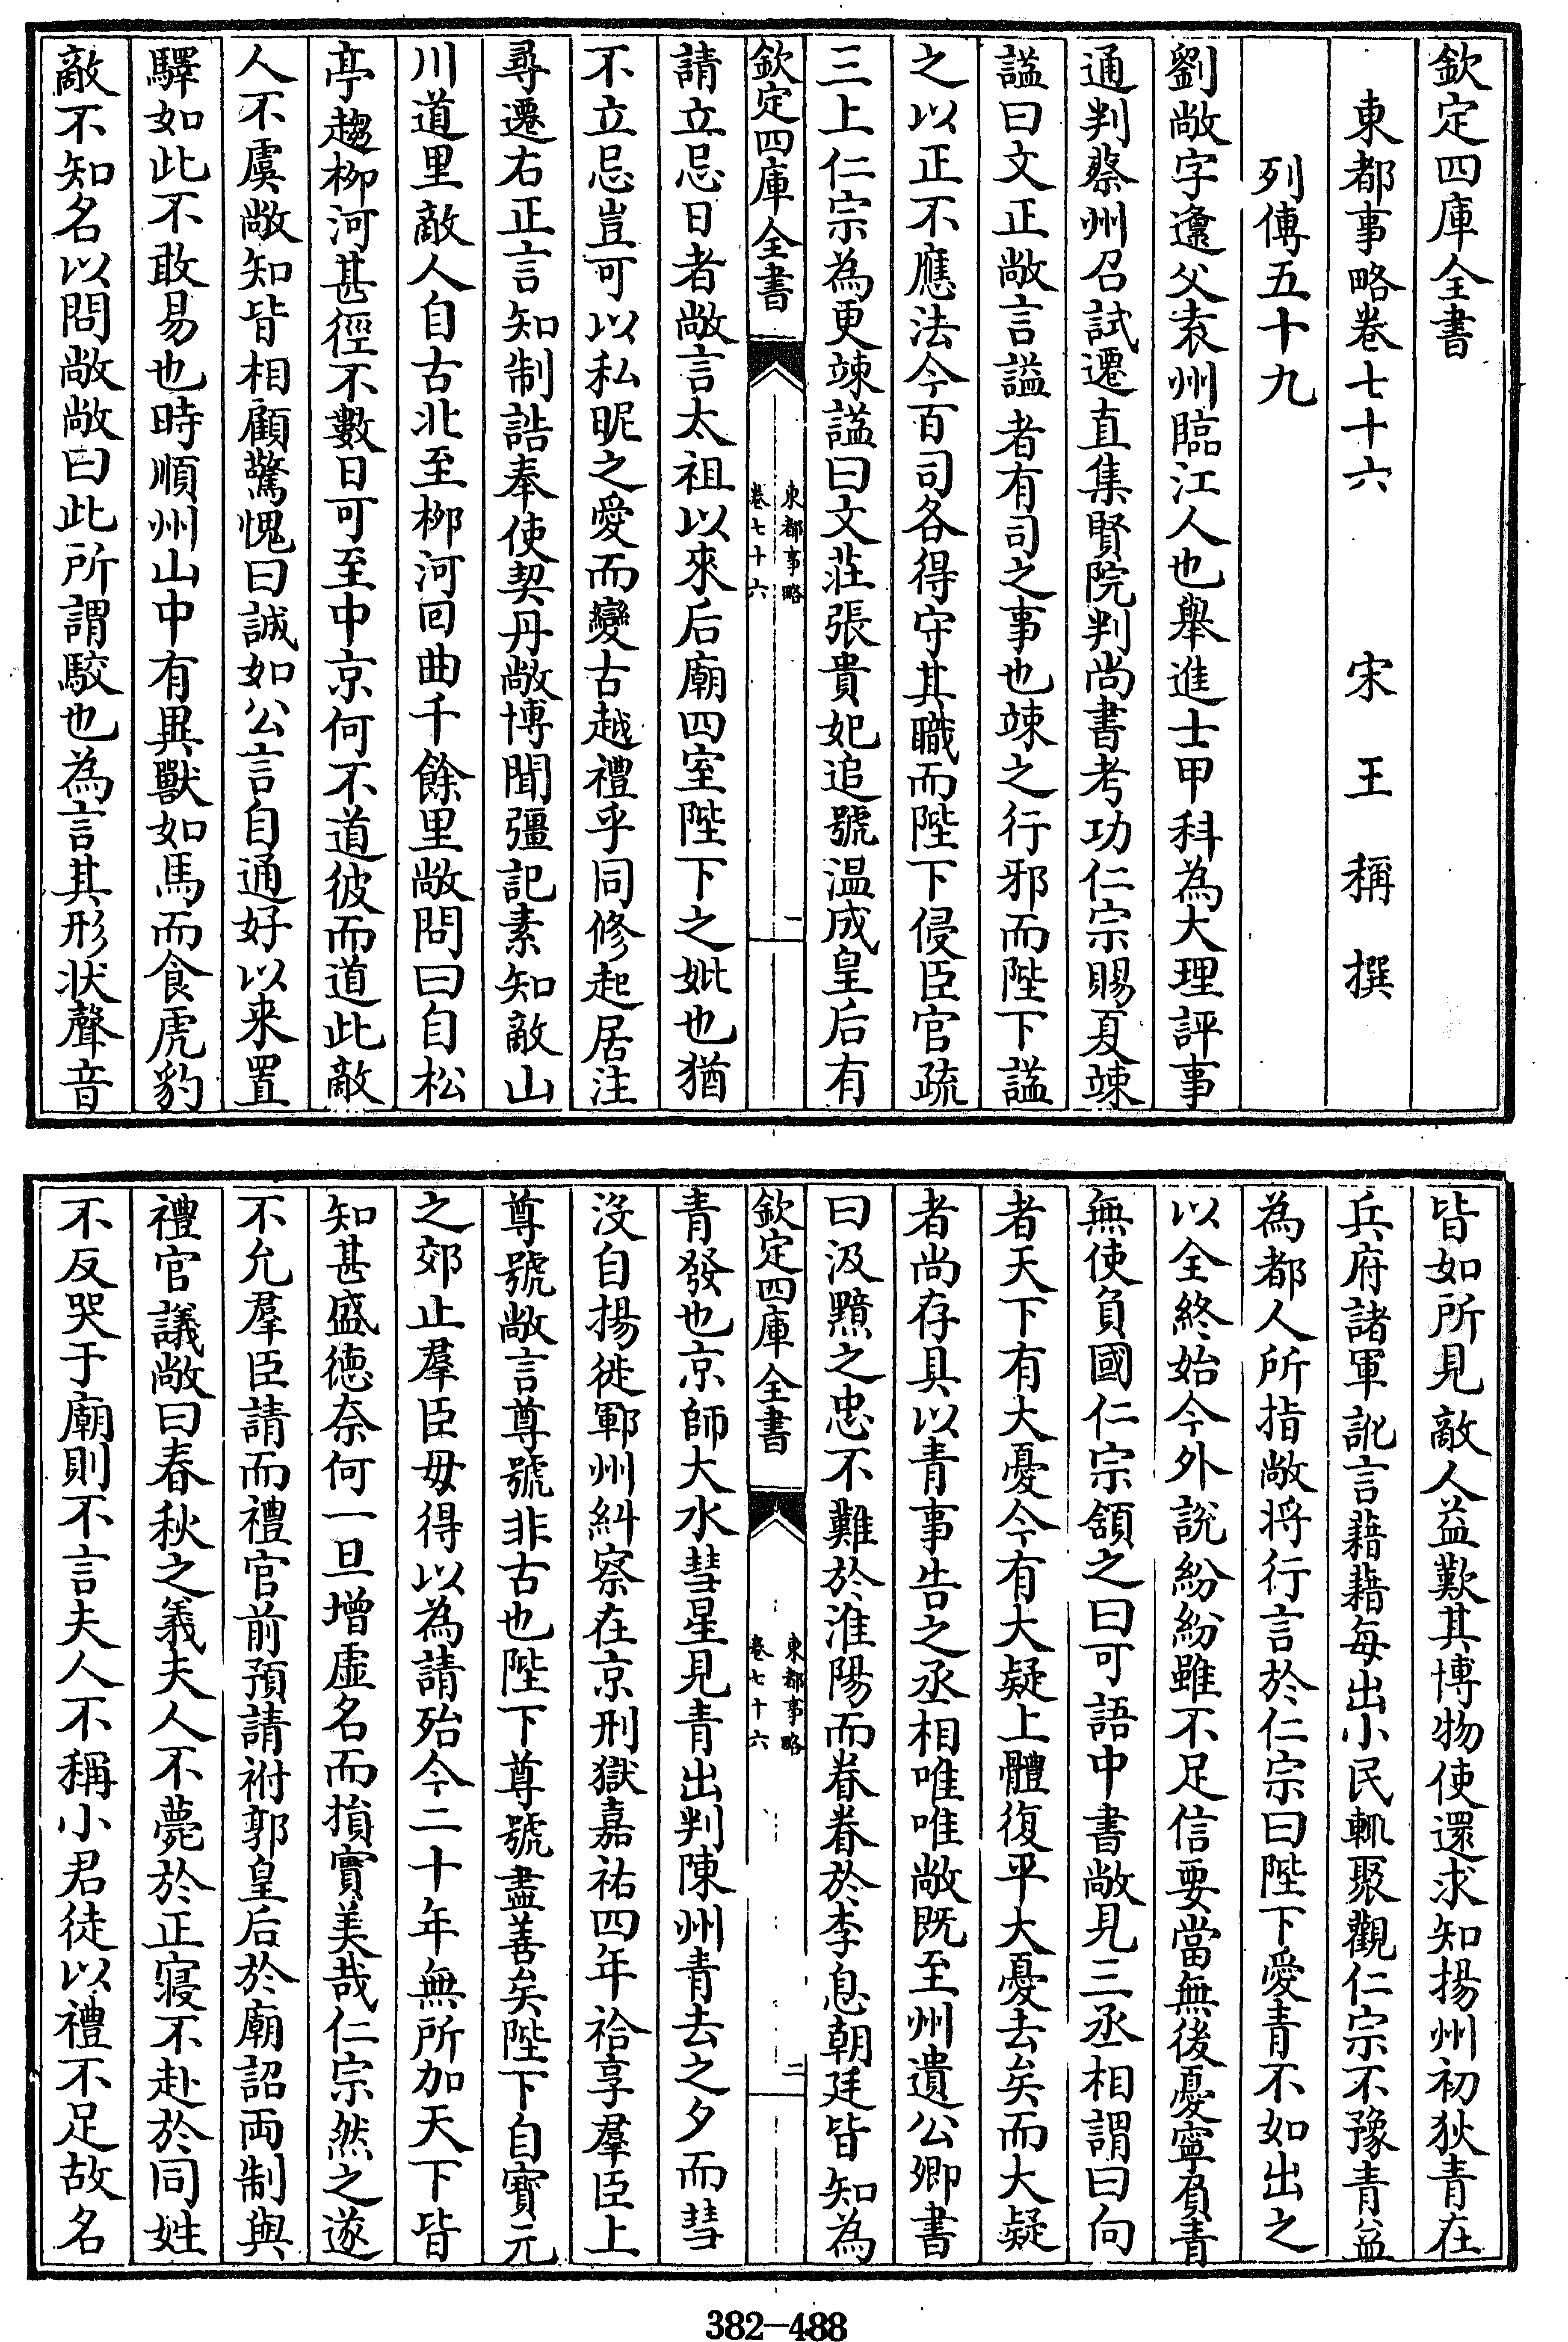 欽定四庫全書
東都事略卷七十六　宋　王　稱　撰
列傳五十九
劉敞字邍父袁州臨江人也舉進士甲科為大理評事
通判蔡州召試遷直集賢院判尚書考功仁宗賜夏竦
諡曰文正敞言諡者有司之事也竦之行邪而陛下諡
之以正不應法今百司各得守其職而陛下侵臣官疏
三上仁宗為更竦諡曰文莊張貴妃追號温成皇后有
欽定四庫全書
東都事略
卷七十六
一
請立忌日者敞言太祖以來后廟四室陛下之妣也猶
不立忌豈可以私昵之愛而變古越禮乎同修起居注
尋遷右正言知制誥奉使契丹敞博聞彊記素知敵山
川道里敵人自古北至栁河回曲千餘里敞問曰自松
亭趨栁河甚徑不數日可至中京何不道彼而道此敵
人不虞敞知皆相顧驚愧曰誠如公言自通好以来置
驛如此不敢易也時順州山中有異獸如馬而食虎豹
敵不知名以問敞敞曰此所謂駮也為言其形狀聲音
皆如所見敵人益歎其博物使還求知揚州初狄青在
兵府諸軍訛言藉藉每出小民輒聚觀仁宗不豫青益
為都人所指敞将行言於仁宗曰陛下愛青不如出之
以全終始今外説紛紛雖不足信要當無後憂寧負青
無使負國仁宗頷之曰可語中書敞見三丞相謂曰向
者天下有大憂今有大疑上體復平大憂去矣而大疑
者尚存具以青事告之丞相唯唯敞既至州遺公卿書
曰汲黯之忠不難於淮陽而眷眷於李息朝廷皆知為
欽定四庫全書
東都事略
卷七十六
二
青發也京師大水彗星見青出判陳州青去之夕而彗
沒自揚徙鄆州糾察在京刑獄嘉祐四年祫享羣臣上
尊號敞言尊號非古也陛下尊號盡善矣陛下自寳元
之郊止羣臣毋得以為請殆今二十年無所加天下皆
知甚盛徳奈何一旦增虛名而損實美哉仁宗然之遂
不允羣臣請而禮官前預請祔郭皇后於廟詔兩制與
禮官議敞曰春秋之義夫人不薨於正寢不赴於同姓
不反哭于廟則不言夫人不稱小君徒以禮不足故名
382-488